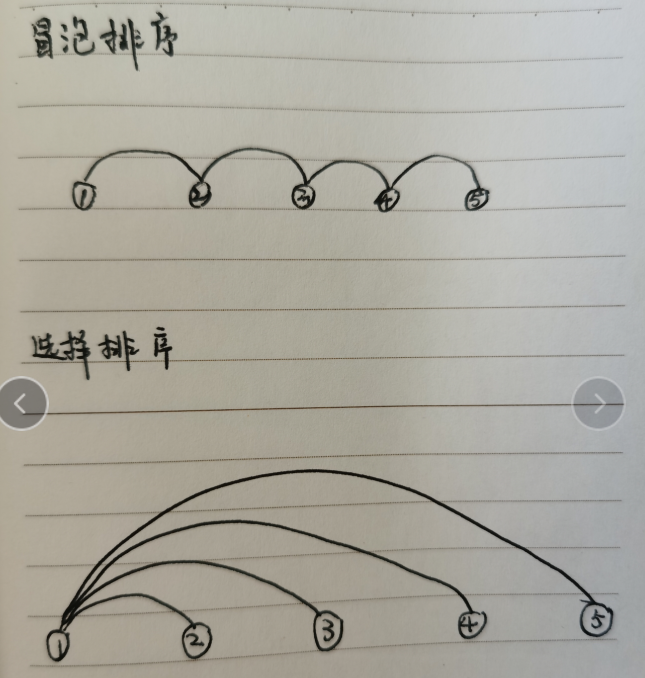 冒泡排序
① ② ③ ④ ⑤
选择排序
① ② ③ ④ ⑤